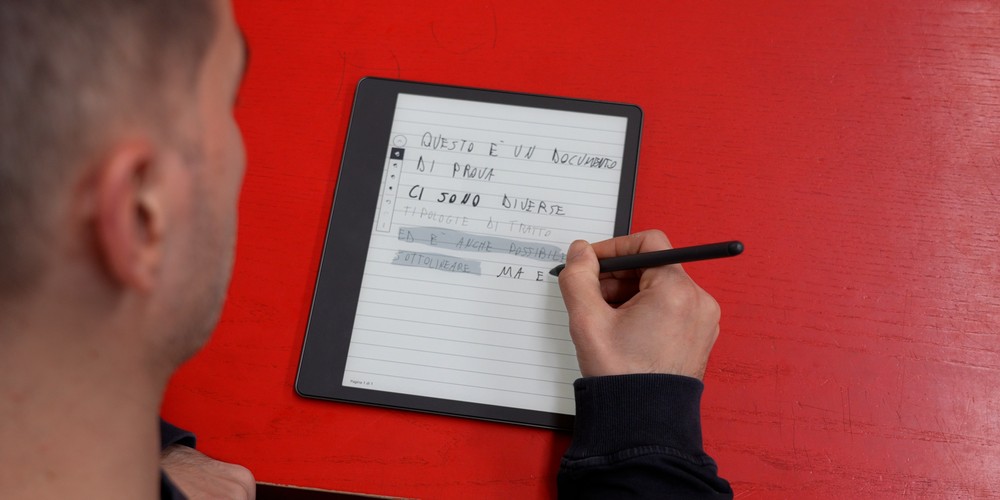 QUESTO E' UN DOCUMENTO
DI PROVA
CI SONO DIVERSE
TIPOLOGIE DI TRATTO
ED E' ANCHE POSSIBILE
SOTTOLINEARE MA E
Pagina 1 di 1